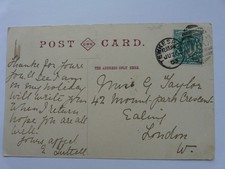 POST CARD.
THE ADDRESS ONLY HERE
Thanks for yours
you'll see I am
on my holiday
will write when
When I return
hope you are all
well
yours affect
Miss G Taylor
42 Mount park Crescent
Ealing
London
W.